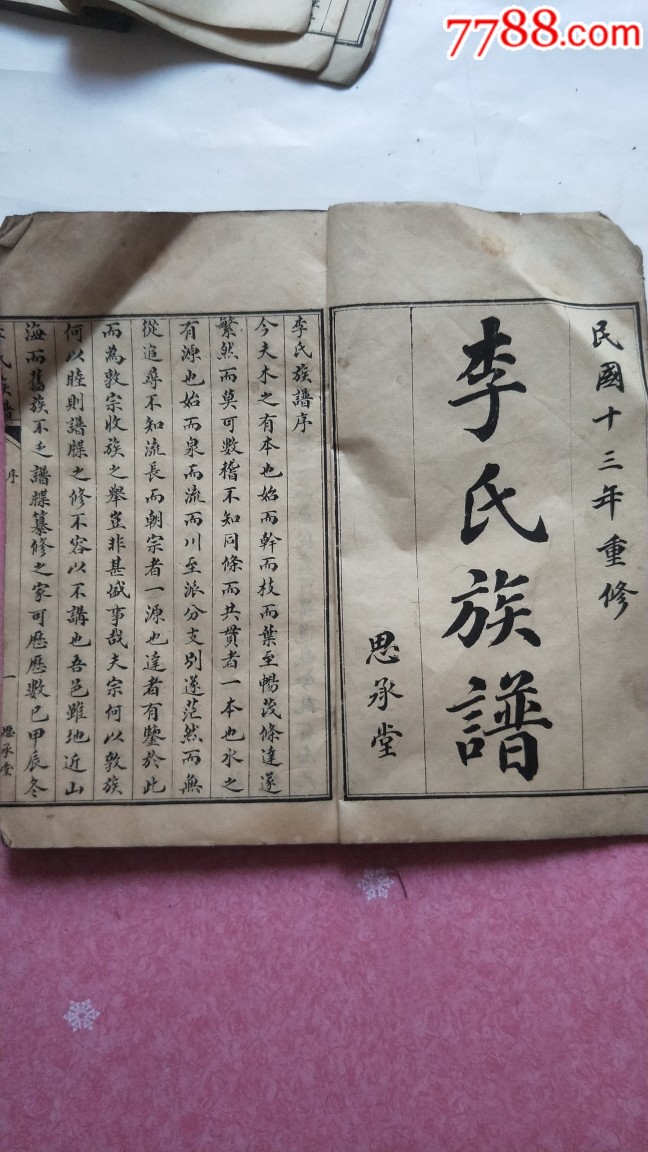 7788.com
民國十三年重修
李氏族譜
思承堂
李氏族譜序
今夫木之有本也始而幹而枝而葉至暢茂條達遂
繁然而莫可數稽不知同條而共貫者一本也水之
有源也始而泉而流而川至派分支别遂茫然而無
從追尋不知流長而朝宗者一源也達者有鑒於此
而為敦宗收族之舉豈非甚盛事哉夫宗何以敦族
何以睦則譜牒之修不容以不講也吾邑雖地近山
海而舊族不乏譜牒纂修之家可歷歷數已甲辰冬
氏族譜
序
一
思承堂